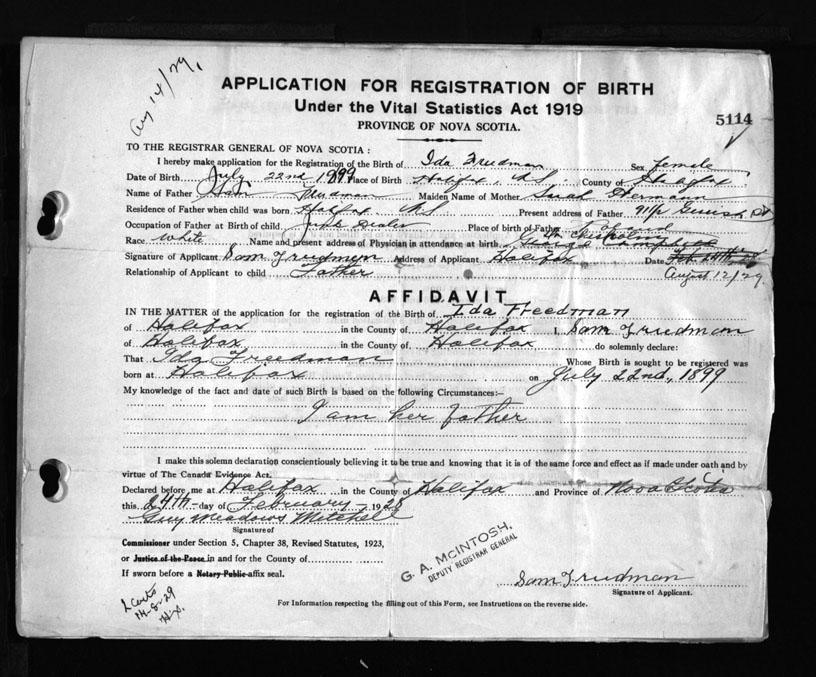 Aug 14/29.
APPLICATION FOR REGISTRATION OF BIRTH
Under the Vital Statistics Act 1919
PROVINCE OF NOVA SCOTIA.
5114
TO THE REGISTRAR GENERAL OF NOVA SCOTIA :
I hereby make application for the Registration of the Birth of Ida Freedman Sex Female
Date of Birth July 22nd 1899 Place of Birth Halifax, N.S. County of Halifax
Name of Father Sam Freedman Maiden Name of Mother Sarah Hermann
Residence of Father when child was born Halifax N.S. Present address of Father 91½
Occupation of Father at Birth of child Junk Dealer Place of birth of Father
Race White Name and present address of Physician in attendance at birth George Campbell
Signature of Applicant Sam Freedman Address of Applicant Halifax Date Feb. 24th
August 12/29
Relationship of Applicant to child Father
AFFIDAVIT
IN THE MATTER of the application for the registration of the Birth of Ida Freedman
of Halifax in the County of Halifax I, Sam Freedman
of Halifax in the County of Halifax do solemnly declare:
That Ida Freedman Whose Birth is sought to be registered was
born at Halifax on July 22nd, 1899
My knowledge of the fact and date of such Birth is based on the following Circumstances:—
I am her father
I make this solemn declaration conscientiously believing it to be true and knowing that it is of the same force and effect as if made under oath and by
virtue of The Canada Evidence Act.
Declared before me at Halifax in the County of Halifax and Province of Nova Scotia
this 24th day of February 1928
Guy Meadows Mitchel
Signature of
Commissioner under Section 5, Chapter 38, Revised Statutes, 1923,
or Justice of the Peace in and for the County of
If sworn before a Notary Public affix seal.
G. A. McINTOSH,
DEPUTY REGISTRAR GENERAL
Sam Freedman
Signature of Applicant.
14-8-29
For Information respecting the filling out of this Form, see Instructions on the reverse side.